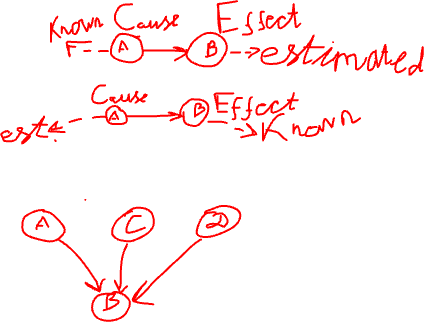 Known Cause Effect
F A B estimated
Cause
A B Effect
est Known
A C D
B